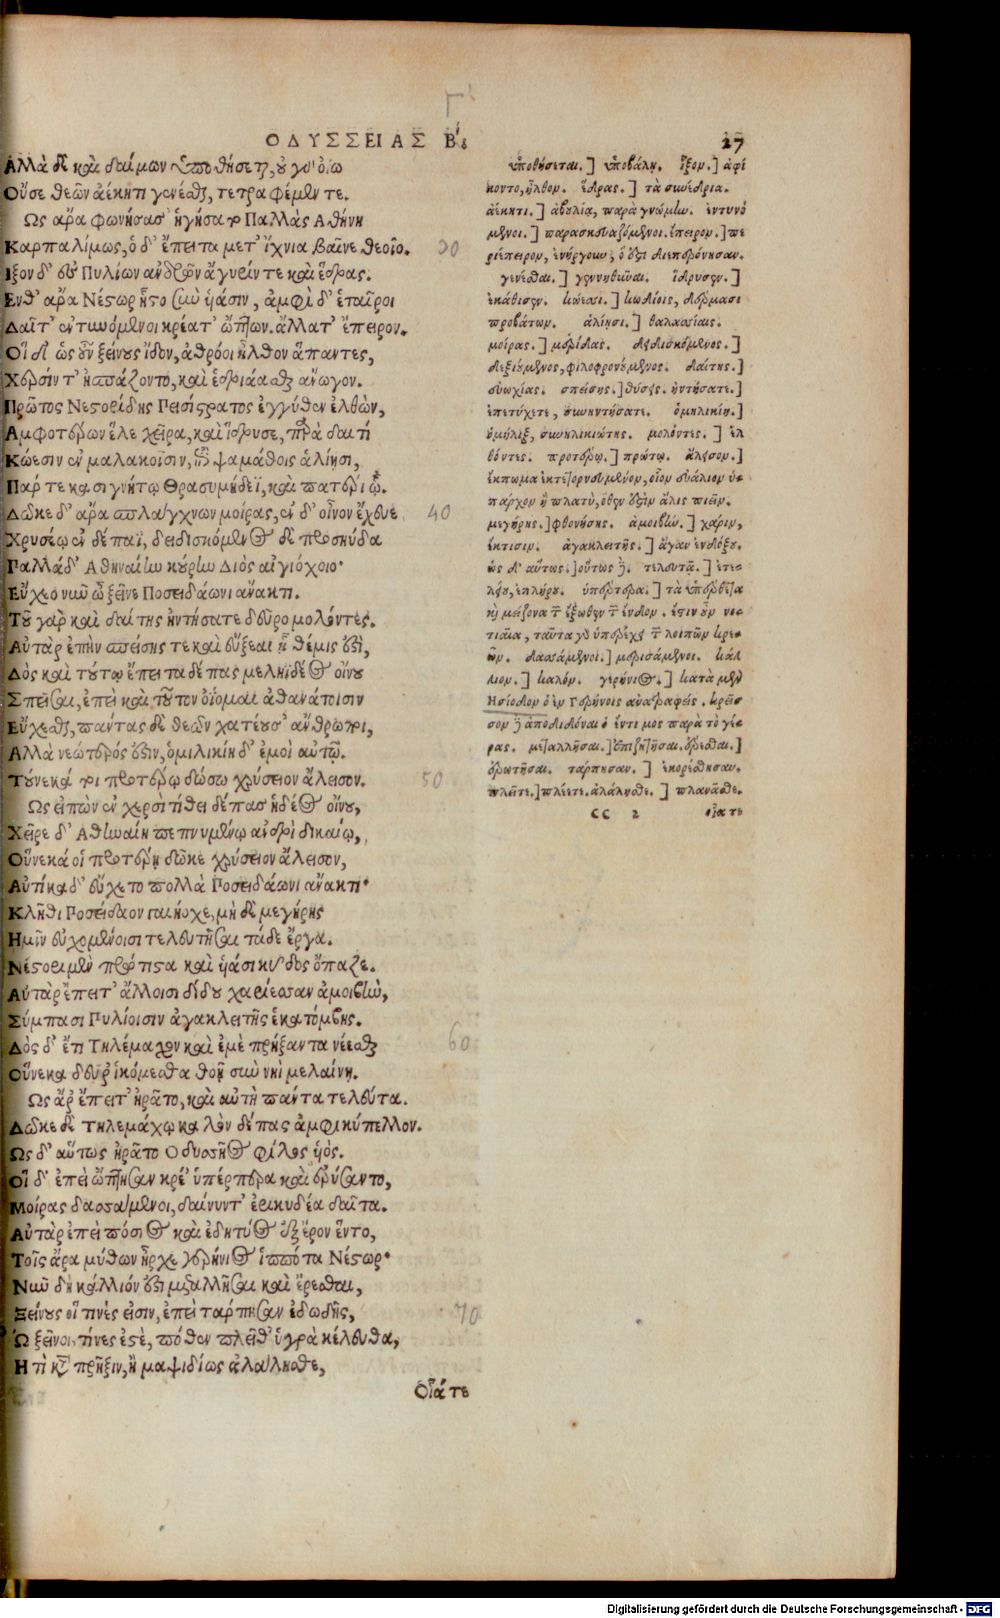 Γ'
ΟΔΥΣΣΕΙΑΣ Β. 27
Αλλὰ δὲ καὶ δαίμων ὑποθήσεται, οὐ γὰρ ὀίω
Οὔσε θεῶν ἀέκητι γενέσθαι, τετραφέμεν τε.
Ως ἄρα φωνήσασ' ἡγήσατο Παλλὰς Αθήνη
Καρπαλίμως, ὁ δ' ἔπειτα μετ' ἴχνια βαῖνε θεοῖο. 30
Ιξον δ' ἐς Πυλίων ἀνδρῶν ἄγυρίν τε καὶ ἕδρας.
Ενθ' ἄρα Νέστωρ ἧστο σὺν ὑιάσιν, ἀμφὶ δ' ἑταῖροι
Δαῖτ' ἐντυνόμενοι κρέατ' ὤπτων. ἄλλατ' ἔπειρον.
Οἳ δ' ὡς οὖν ξείνους ἴδον, ἀθρόοι ἦλθον ἅπαντες,
Χερσίν τ' ἠσπάζοντο, καὶ ἑδριάασθαι ἄνωγον.
Πρῶτος Νεστορίδης Πεισίστρατος ἐγγύθεν ἐλθὼν,
Αμφοτέρων ἕλε χεῖρα, καὶ ἵδρυσε, παρὰ δαιτί
Κώεσιν ἐν μαλακοῖσιν, ἐπὶ ψαμάθοις ἁλίησι,
Πάρ τε κασιγνήτῳ Θρασυμήδεϊ, καὶ πατέρι ᾧ.
Δῶκε δ' ἄρα σπλάγχνων μοίρας, ἐν δ' οἶνον ἔχευε 40
Χρυσέῳ ἐν δέπαϊ, δειδισκόμενος δὲ προσηύδα
Παλλάδ' Αθηναίην κούρην Διὸς αἰγιόχοιο·
Εὔχεο νῦν ὦ ξεῖνε Ποσειδάωνι ἄνακτι.
Τοῦ γὰρ καὶ δαίτης ἠντήσατε δεῦρο μολόντες.
Αὐτὰρ ἐπὴν σπείσης τε καὶ εὔξεαι ἣ θέμις ἐστὶ,
Δὸς καὶ τούτῳ ἔπειτα δέπας μεληϊδέος οἴνου
Σπεῖσαι, ἐπεὶ καὶ τοῦτον ὀΐομαι ἀθανάτοισιν
Εὔχεσθαι, πάντας δὲ θεῶν χατέουσ' ἄνθρωποι,
Αλλὰ νεώτερός ἐστιν, ὁμιλικίη δ' ἐμοὶ αὐτῷ.
Τούνεκά τοι προτέρῳ δώσω χρύσειον ἄλεισον. 50
Ως εἰπὼν ἐν χερσὶ τίθει δέπας ἡδέος οἴνου,
Χεῖρε δ' Αθηναίη πεπνυμένῳ ἀνδρὶ δικαίῳ,
Οὕνεκά οἱ προτέρῃ δῶκε χρύσειον ἄλεισον,
Αὐτίκα δ' εὔχετο πολλὰ Ποσειδάωνι ἄνακτι·
Κλῆθι Ποσείδαον γαιήοχε, μὴ δὲ μεγήρης
Ημῖν εὐχομένοισι τελευτῆσαι τάδε ἔργα.
Νέστορι μὲν πρώτιστα καὶ ὑιάσι κῦδος ὄπαζε.
Αὐτὰρ ἔπειτ' ἄλλοισι δίδου χαρίεσσαν ἀμοιβὴν,
Σύμπασι Πυλίοισιν ἀγακλειτῆς ἑκατόμβης.
Δὸς δ' ἔτι Τηλέμαχον καὶ ἐμὲ πρήξαντα νέεσθαι 60
Οὕνεκα δεῦρ' ἱκόμεσθα θοῇ σὺν νηὶ μελαίνῃ.
Ως ἄρ ἔπειτ' ἠρᾶτο, καὶ αὐτὴ πάντα τελεύτα.
Δῶκε δὲ Τηλεμάχῳ καλὸν δέπας ἀμφικύπελλον.
Ως δ' αὔτως ἠρᾶτο Οδυσσῆος φίλος ὑιός.
Οἳ δ' ἐπεὶ ὤπτησαν κρέ' ὑπέρτερα καὶ ἐρύσαντο,
Μοίρας δασσάμενοι, δαίνυντ' ἐρικυδέα δαῖτα.
Αὐτὰρ ἐπεὶ πόσιος καὶ ἐδητύος ἐξ ἔρον ἕντο,
Τοῖς ἄρα μύθων ἦρχε γερήνιος ἱππότα Νέστωρ·
Νῦν δὴ κάλλιόν ἐστι μεταλλῆσαι καὶ ἔρεσθαι,
Ξείνους οἵ τινές εἰσιν, ἐπεὶ τάρπησαν ἐδωδῆς, 70
Ω ξεῖνοι, τίνες ἐστὲ, πόθεν πλεῖθ' ὑγρὰ κέλευθα,
Η τὶ κατὰ πρῆξιν, ἢ μαψιδίως ἀλάλησθε,
Οἷά τε
ὑποθήσεται.] ὑποβάλῃ. ἷξον.] ἀφί
κοντο, ἦλθον. ἕδρας.] τὰ συνέδρια.
ἀέκητι.] ἀβουλίᾳ, παρὰ γνώμην. ἐντυνό
μενοι.] παρασκευαζόμενοι. ἔπειρον.] πε
ριέπειρον, ἐνήργουν, ὅ ἐστι διεπερόνησαν.
γενέσθαι.] γεννηθῆναι. ἵδρυσεν.]
ἐκάθισεν. κώεσι.] κωδίοις, δέρμασι
προβάτων. ἁλίησι.] θαλασσίαις.
μοίρας.] μερίδας. δεδισκόμενος.]
δεξιούμενος, φιλοφρονούμενος. δαίτης.]
εὐωχίας. σπείσῃς.] θύσῃς. ἠντήσατε.]
ἐπετύχετε, συνηντήσατε. ὁμηλικίη.]
ὁμήλιξ, συνηλικιώτης. μολόντες.] ἐλ
θόντες. προτέρῳ.] πρώτῳ. ἄλεισον.]
μεγήρης.] φθονήσης. ἀμοιβὴν.] χάριν,
ἔκτισιν. ἀγακλειτῆς.] ἄγαν ἐνδόξου.
ὡς δ' αὔτως.] οὕτως δέ. τελευτᾷ.] ἐτέ-
λει, ἐπλήρου. ὑπέρτερα.] τὰ ὑπέρθεν
ὦν. δασσάμενοι.] μερισάμενοι. κάλ
λιον.] καλόν. γερήνιος.] κατὰ μὲν
Ησίοδον ὁ ἐν Γερήνοις ἀνατραφείς. κρεῖσ
σον δὲ ἀποδιδόναι ὁ ἔντιμος παρὰ τὸ γέ-
ρας. μεταλλῆσαι.] ἐπιζητῆσαι. ἔρεσθαι.]
ἐρωτῆσαι. τάρπησαν.] ἐκορέσθησαν.
πλεῖτε.] πλέετε. ἀλάλησθε.] πλανᾶσθε.
CC 2 οἷά τε
Digitalisierung gefördert durch die Deutsche Forschungsgemeinschaft - DFG